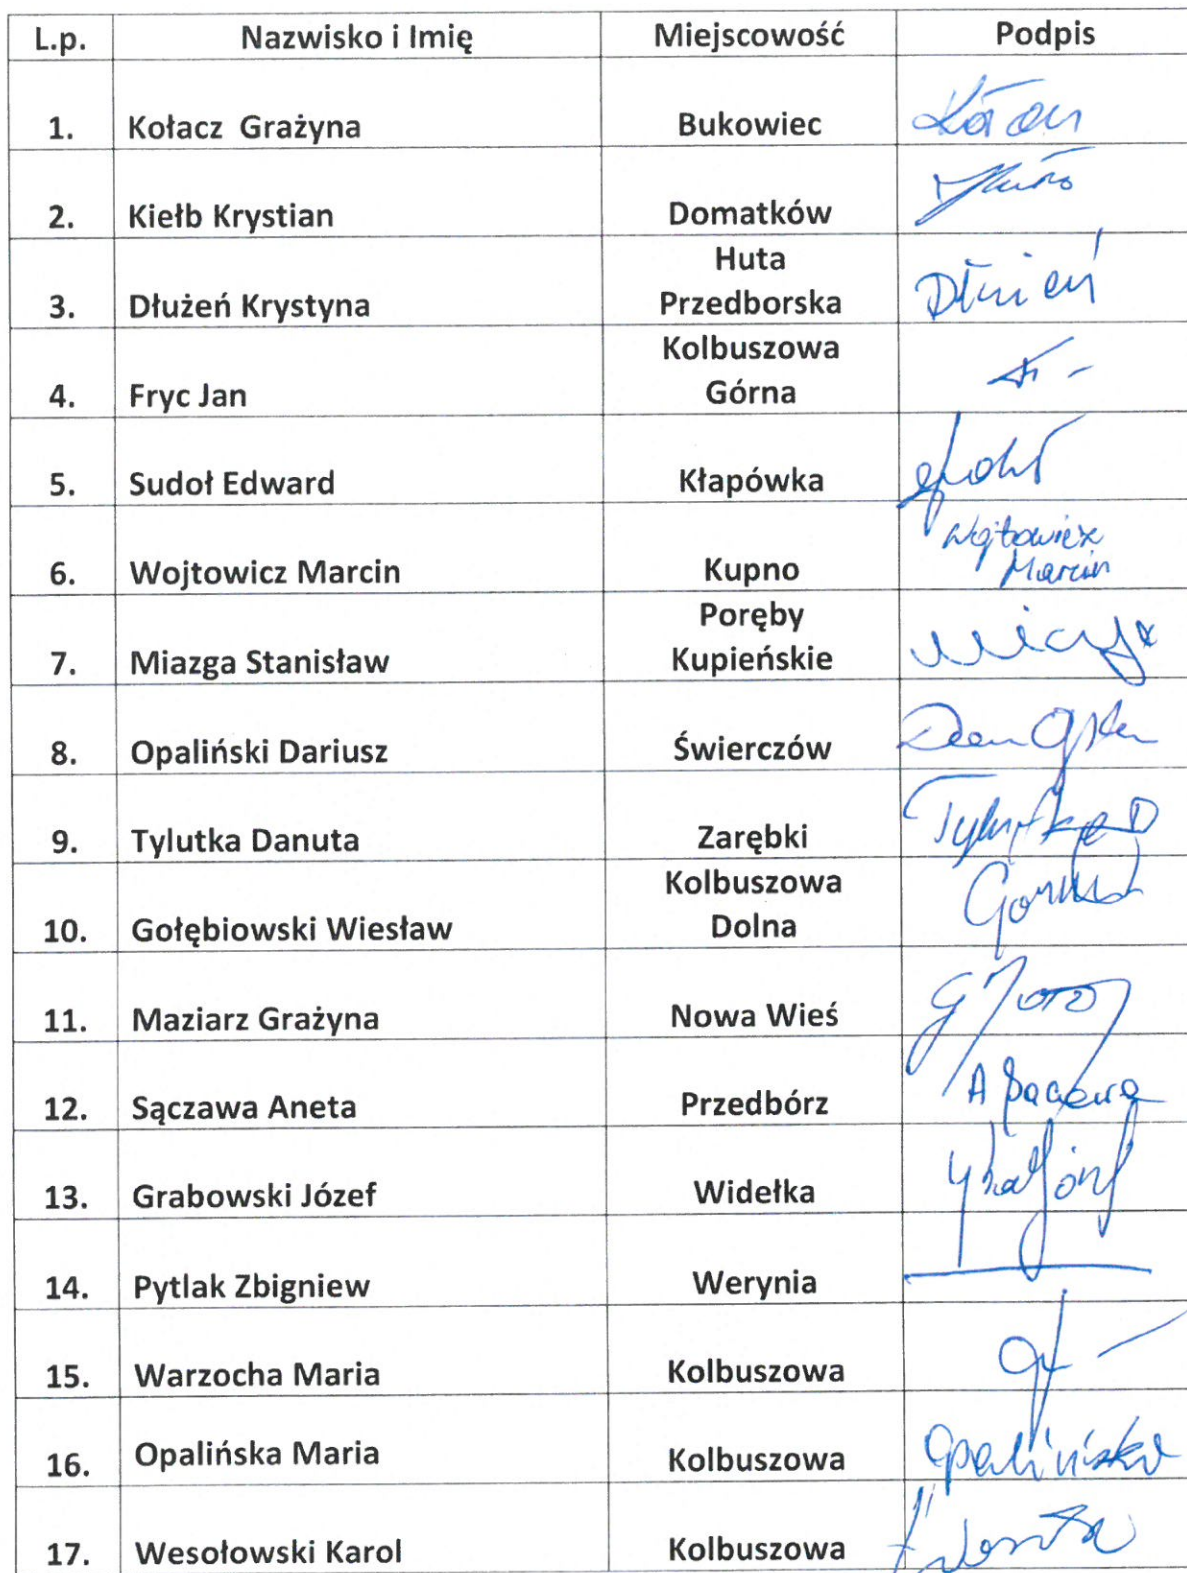 L.p. Nazwisko i Imię Miejscowość Podpis
1. Kołacz Grażyna Bukowiec
2. Kiełb Krystian Domatków
Huta
3. Dłużeń Krystyna Przedborska Dłużeń
Kolbuszowa
4. Fryc Jan Górna
5. Sudoł Edward Kłapówka
Wojtowicz
6. Wojtowicz Marcin Kupno Marcin
Poręby
7. Miazga Stanisław Kupieńskie
8. Opaliński Dariusz Świerczów
9. Tylutka Danuta Zarębki Tylutka D
Kolbuszowa
10. Gołębiowski Wiesław Dolna
11. Maziarz Grażyna Nowa Wieś
12. Sączawa Aneta Przedbórz
13. Grabowski Józef Widełka
14. Pytlak Zbigniew Werynia
15. Warzocha Maria Kolbuszowa
16. Opalińska Maria Kolbuszowa Opalińska
17. Wesołowski Karol Kolbuszowa